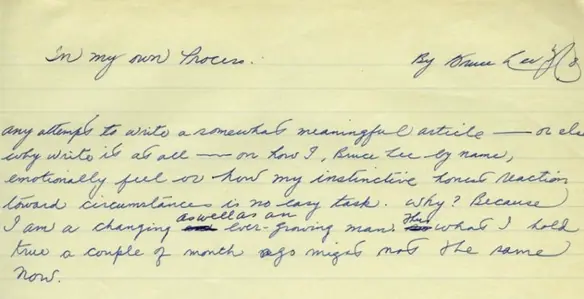 In my own Process. By Bruce Lee
any attempts to write a somewhat meaningful article — or else
why write it at all — on how I, Bruce Lee by name,
emotionally feel or how my instinctive honest reaction
toward circumstances is no easy task. Why? Because
I am a changing as well as an ever-growing man. Thus what I hold
true a couple of month ago might not the same
now.